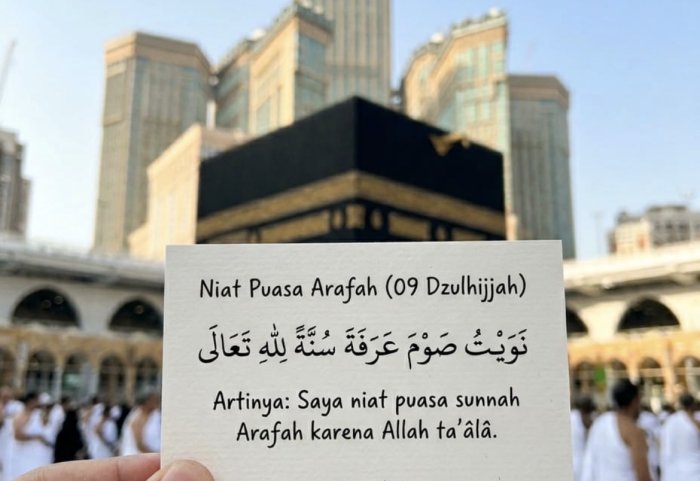 Niat Puasa Arafah (09 Dzulhijjah)
نَوَيْتُ صَوْمَ عَرَفَةَ سُنَّةً لِلّٰهِ تَعَالَى
Artinya: Saya niat puasa sunnah
Arafah karena Allah ta'âlâ.